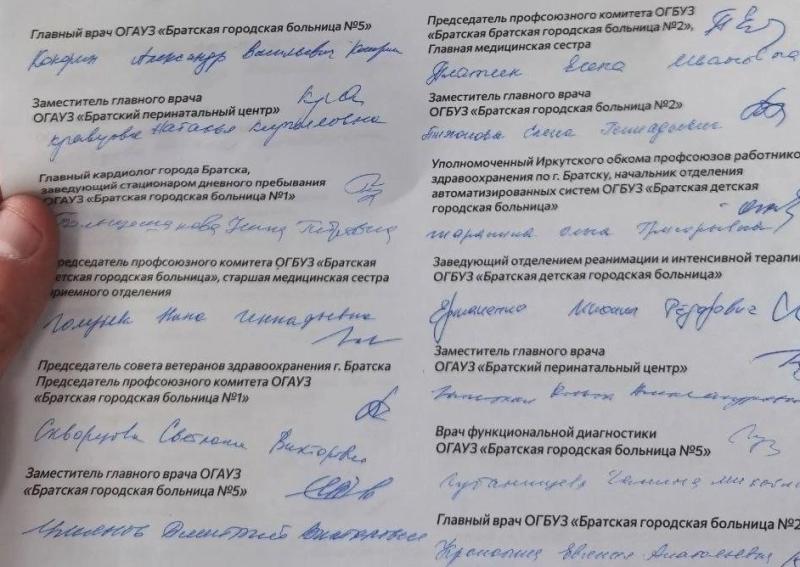 Главный врач ОГАУЗ «Братская городская больница №5»
Александр Васильевич
Заместитель главного врача
ОГАУЗ «Братский перинатальный центр»
Кравцова Наталья Кирилловна
Главный кардиолог города Братска,
заведующий стационаром дневного пребывания
ОГАУЗ «Братская городская больница №1»
Петровна
председатель профсоюзного комитета ОГБУЗ «Братская
детская городская больница», старшая медицинская сестра
приемного отделения
Нина Геннадьевна
Председатель совета ветеранов здравоохранения г. Братска
Председатель профсоюзного комитета ОГАУЗ
«Братская городская больница №1»
Скворцова Светлана Викторовна
Заместитель главного врача ОГАУЗ
«Братская городская больница №5»
Дмитрий Викторович
Председатель профсоюзного комитета ОГБУЗ
«Братская братская городская больница №2»,
Главная медицинская сестра
Елена Ивановна
Заместитель главного врача
ОГБУЗ «Братская городская больница №2»
Елена Геннадьевна
Уполномоченный Иркутского обкома профсоюзов работнико
здравоохранения по г. Братску, начальник отделения
автоматизированных систем ОГБУЗ «Братская детская
городская больница»
Григорьевна
Заведующий отделением реанимации и интенсивной терапи
ОГБУЗ «Братская детская городская больница»
Михаил Федорович
Заместитель главного врача
ОГАУЗ «Братский перинатальный центр»
Врач функциональной диагностики
ОГАУЗ «Братская городская больница №5»
Галина
Главный врач ОГБУЗ «Братская городская больница №2
Евгения Анатольевна